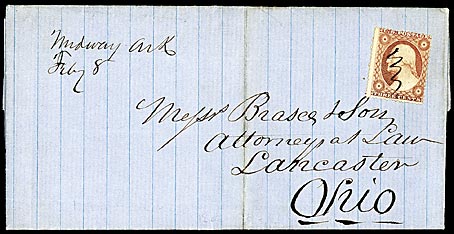 Midway Ark
Feby 8
U.S. POSTAGE
THREE CENTS
Messrs Brasee & Son
Attorneys at Law
Lancaster
Ohio